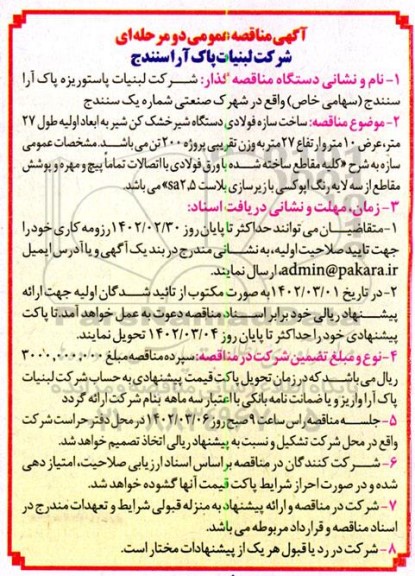 آگهی مناقصه عمومی دو مرحله ای
شرکت لبنیات پاک آرا سنندج
۱- نام و نشانی دستگاه مناقصه گذار: شرکت لبنیات پاستوریزه پاک آرا
سنندج (سهامی خاص) واقع در شهرک صنعتی شماره یک سنندج
۲- موضوع مناقصه: ساخت سازه فولادی دستگاه شیر خشک کن شیر به ابعاد اولیه طول ۲۷
متر، عرض ۱۰ متر و ارتفاع ۲۷ متر به وزن تقریبی پروژه ۲۰۰ تن می باشد. مشخصات عمومی
سازه به شرح «کلیه مقاطع ساخته شده با ورق فولادی با اتصالات تماماً پیچ و مهره و پوشش
مقاطع از سه لایه رنگ اپوکسی با زیرسازی بلاست sa۲,۵» می باشد.
۳- زمان، مهلت و نشانی دریافت اسناد:
۱- متقاضیان می توانند حداکثر تا پایان روز ۱۴۰۲/۰۲/۳۰ رزومه کاری خود را
جهت تایید صلاحیت اولیه، به نشانی مندرج در بند یک آگهی و یا آدرس ایمیل
admin@pakara.ir ارسال نمایند.
۲- در تاریخ ۱۴۰۲/۰۳/۰۱ به صورت مکتوب از تائید شدگان اولیه جهت ارائه
پیشنهاد ریالی خود برابر اسناد مناقصه دعوت به عمل خواهد آمد تا پاکت
پیشنهادی خود را حداکثر تا پایان روز ۱۴۰۲/۰۳/۰۴ تحویل نمایند.
۴- نوع و مبلغ تضمین شرکت در مناقصه: سپرده مناقصه مبلغ ۳۰۰۰,۰۰۰,۰۰۰
ریال می باشد که در زمان تحویل پاکت قیمت پیشنهادی به حساب شرکت لبنیات
پاک آرا واریز و یا ضمانت نامه بانکی با اعتبار سه ماهه بنام شرکت ارائه گردد
۵- جلسه مناقصه راس ساعت ۹ صبح روز در محل دفتر حراست شرکت
واقع در محل شرکت تشکیل و نسبت به پیشنهاد ریالی اتخاذ تصمیم خواهد شد.
۶- شرکت کنندگان در مناقصه بر اساس اسناد ارزیابی صلاحیت، امتیاز دهی
شده و در صورت احراز شرایط پاکت قیمت آنها گشوده خواهد شد.
۷- شرکت در مناقصه و ارائه پیشنهاد به منزله قبولی شرایط و تعهدات مندرج در
اسناد مناقصه و قرارداد مربوطه می باشد.
۸- شرکت در رد یا قبول هر یک از پیشنهادات مختار است.